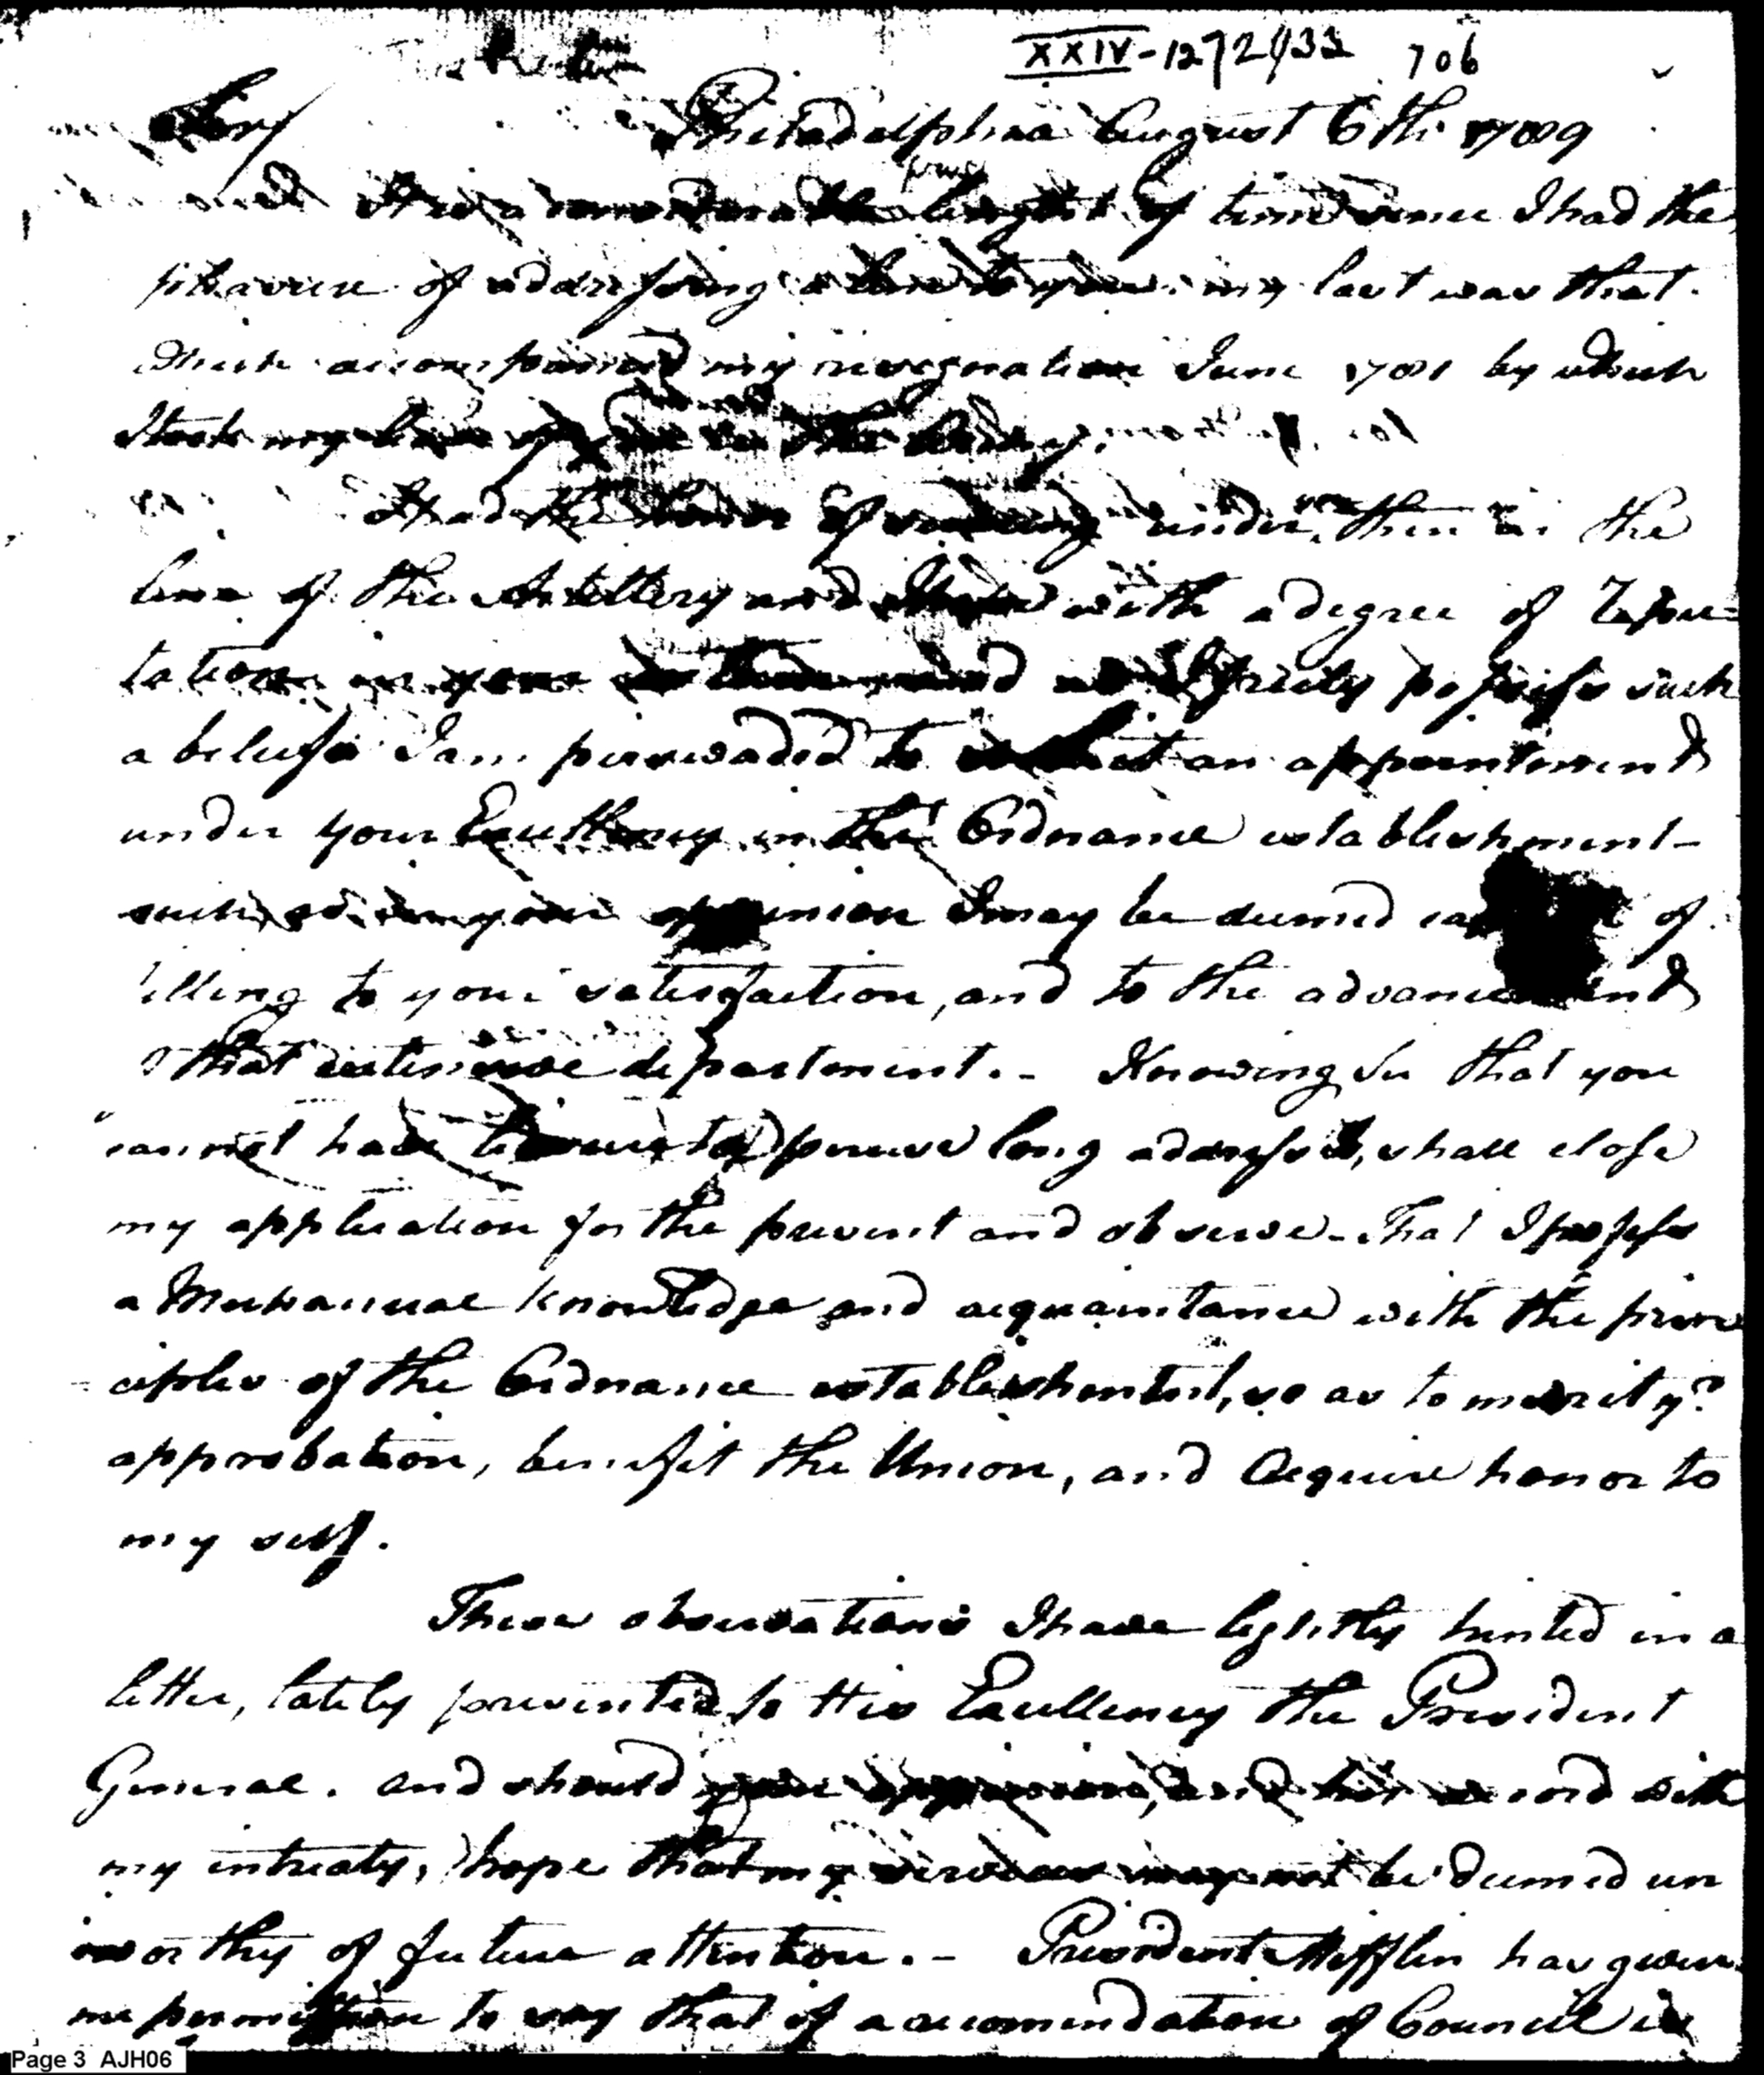 XXIV-127 2/33 706
Sir/ Philadelphia August 6th. 1789
some
It is a considerable length of time since I had the
pleasure of addressing a line to you. my last was that
which accompanied my resignation June 1781 by which
I took my leave of you in the Army.
I had the honor of serving under you then in the
line of the Artillery and with a degree of Repu=
tation in your possess such
a belief I am perswaded to solicit an appointment
under your Excellency in the Ordnance establishment-
such, as in your oppinion I may be deemed of
filling to your satisfaction, and to the advancement
of that extensive department.- Knowing Sir that you
cannot have leisure to peruse long addresses, shall close
my application for the present and observe- That I possess
a Mechanical knowledge and acquaintance with the prin
ciples of the Ordnance establishment, so as to merit yr.
approbation, benefit the Union, and Acquire honor to
my self.
These observations I have lightly hinted in a
letter, lately presented to His Excellency the President
General. and should your oppinions, and his accord with
my intreaty, I hope that my services may not be deemed un
worthy of future attention.- President Mifflin has given
me permission to say that if a recomendation of Council is
Page 3 AJH06